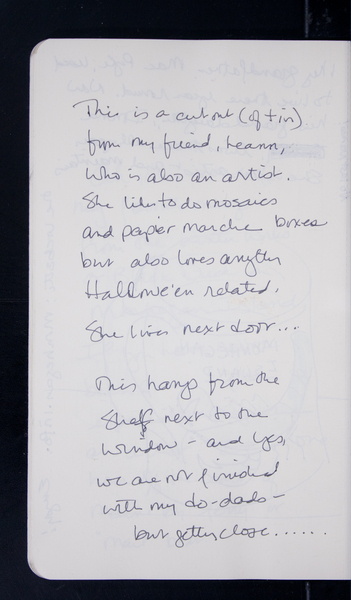 This is a cut out (of tin)
from my friend, Leann,
who is also an artist.
She likes to do mosaics
and papier marche boxes
but also loves anythg
Hallowe'en related.
She lives next door...
This hangs from the
shelf next to the
window - and yes,
we are not finished
with my do-dads -
but gettg close......